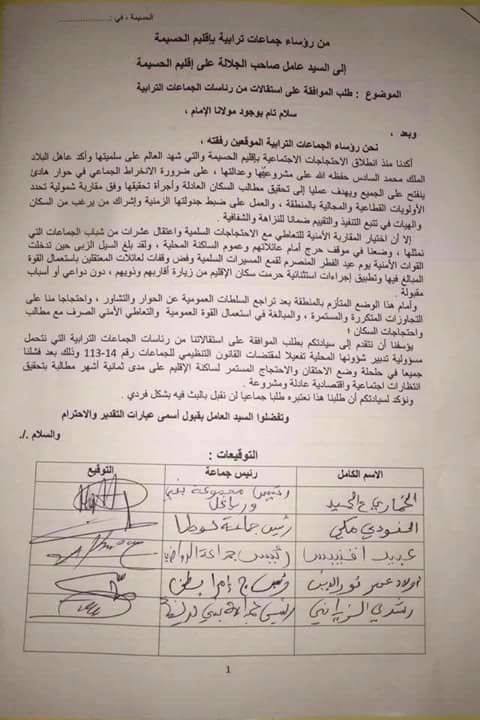 الحسيمة ، في : ...............
من رؤساء جماعات ترابية بإقليم الحسيمة
إلى السيد عامل صاحب الجلالة على إقليم الحسيمة
الموضوع : طلب الموافقة على استقالات من رئاسات الجماعات الترابية
سلام تام بوجود مولانا الإمام ،
وبعد ،
نحن رؤساء الجماعات الترابية الموقعين رفقته ،
أكدنا منذ انطلاق الاحتجاجات الاجتماعية بإقليم الحسيمة والتي شهد العالم على سلميتها وأكد عاهل البلاد
الملك محمد السادس حفظه الله على مشروعيتها وعدالتها ، على ضرورة الانخراط الجماعي في حوار هادئ
ينفتح على الجميع ويهدف عمليا إلى تحقيق مطالب السكان العادلة وأجرأة تحقيقها وفق مقاربة شمولية تحدد
الأولويات القطاعية والمجالية بالمنطقة ، والعمل على ضبط جدولتها الزمنية وإشراك من يرغب من السكان
والهيات في تتبع التنفيذ والتقييم ضمانا للنزاهة والشفافية .
إلا أن اختيار المقاربة الأمنية للتعاطي مع الاحتجاجات السلمية واعتقال عشرات من شباب الجماعات التي
نمثلها ، وضعنا في موقف حرج أمام عائلاتهم وعموم الساكنة المحلية ، ولقد بلغ السيل الزبى حين تدخلت
القوات الأمنية يوم عيد الفطر المنصرم لقمع المسيرات السلمية وفض وقفات لعائلات المعتقلين باستعمال القوة
المبالغ فيها وتطبيق إجراءات استثنائية حرمت سكان الإقليم من زيارة أقاربهم وذويهم ، دون دواعي أو أسباب
مقبولة .
وأمام هذا الوضع المتأزم بالمنطقة بعد تراجع السلطات العمومية عن الحوار والتشاور ، واحتجاجا منا على
التجاوزات المتكررة والمستمرة ، والمبالغة في استعمال القوة العمومية والتعاطي الأمني الصرف مع مطالب
واحتجاجات السكان ؛
يؤسفنا أن نتقدم إلى سيادتكم بطلب الموافقة على استقالاتنا من رئاسات الجماعات الترابية التي نتحمل
مسؤولية تدبير شؤونها المحلية تفعيلا لمقتضات القانون التنظيمي للجماعات رقم 14-113 وذلك بعد فشلنا
جميعا في حلحلة وضع الاحتقان والاحتجاج المستمر لساكنة الإقليم على مدى ثمانية أشهر مطالبة بتحقيق
انتظارات اجتماعية واقتصادية عادلة ومشروعة .
ونؤكد لسيادتكم أن طلبنا هذا نعتبره طلبا جماعيا لن نقبل بالبث فيه بشكل فردي .
وتفضلوا السيد العامل بقبول أسمى عبارات التقدير والاحترام
والسلام ./.
التوقيعات :
الاسم الكامل رئيس جماعة التوقيع
رئيس مجموعة بني ورياغل
مكي رئيس جماعة لوطا
رئيس جماعة الرواضي
اولاد عمر نورالدين رئيس ج إمرابطن
رشدي رئيس جماعة بني
1